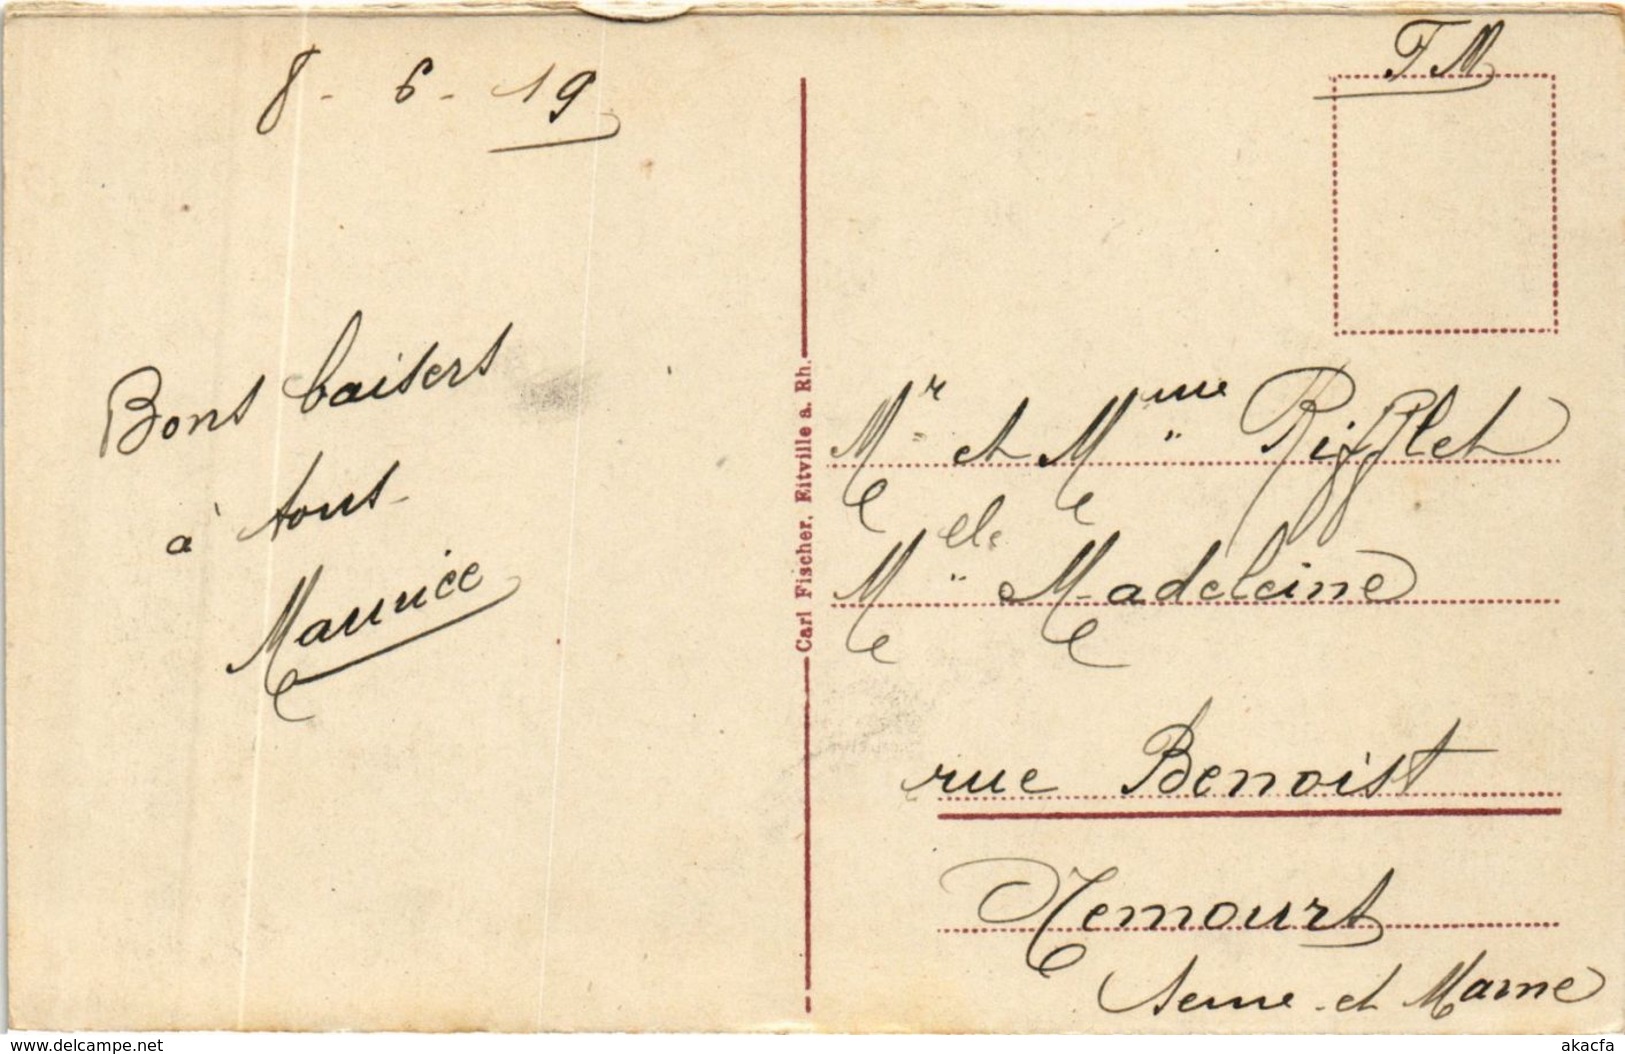 8 - 6 - 19
Bons baisers
à tous -
Maurice
Carl Fischer, Eitville a. Rh.
F M
Mr et Mme Rifflet
Melle Madeleine
rue Benoist
Nemours
Seine - et Marne
delcampe.net
akacfa